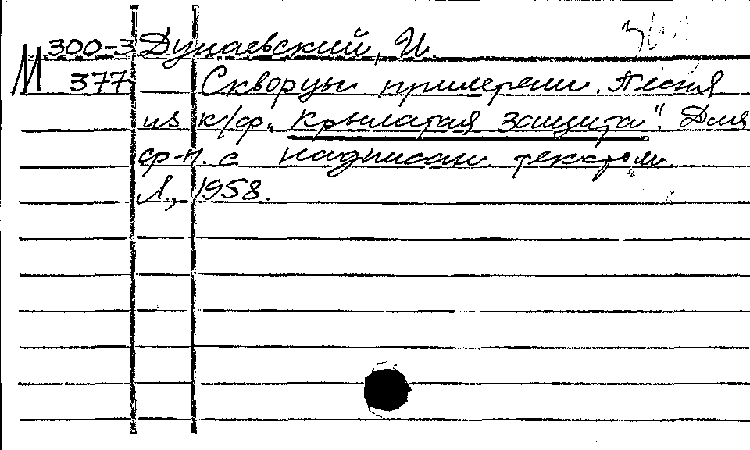 М 300-3 Дунаевский, И.
377 Скворцы прилетели. Песня
из к/ф. "Крылатая защита". Для
ф-п. с надписан. текстом.
Л., 1958.